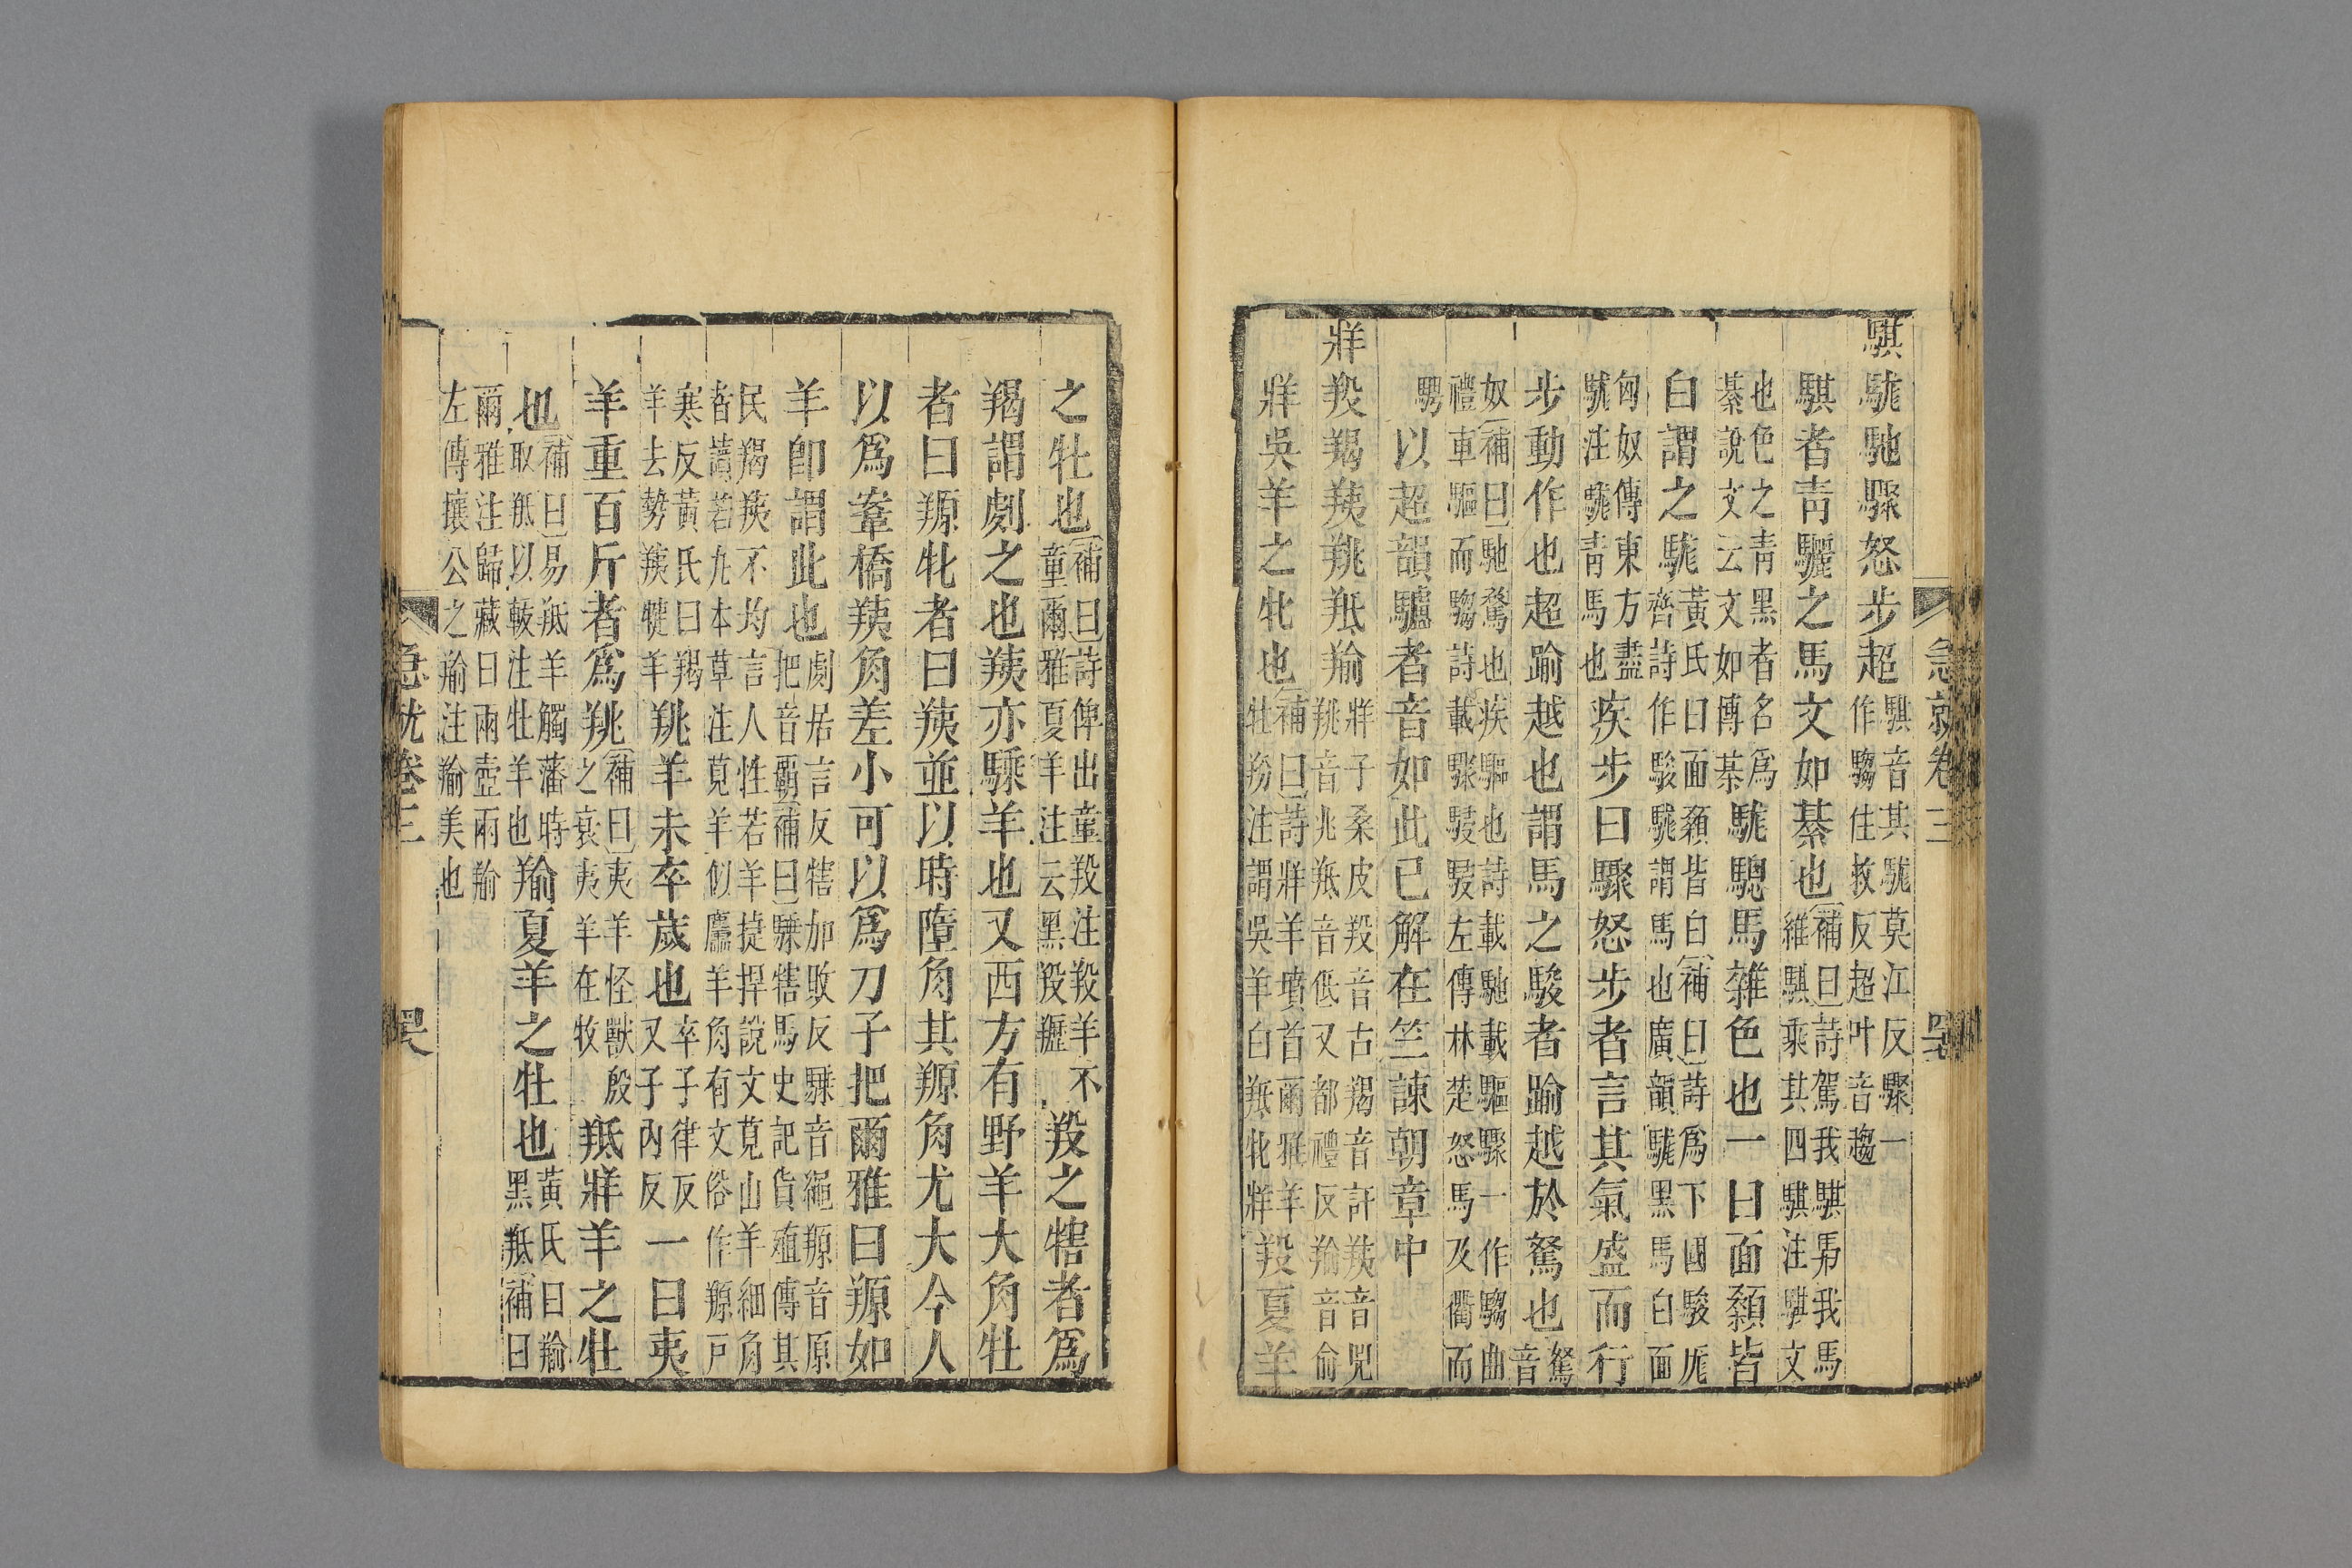 急就卷三
騏駹馳驟怒步超騏音其駹莫江反驟一作騶仕救反超叶音趨
騏者青驪之馬文如綦也補曰詩駕我騏馵我馬維騏乘其四騏注騏文
也色之青黑者名為綦說文云文如博棊駹騘馬雜色也一曰面顙皆
白謂之駹黃氏曰面顙皆白補曰詩為下國駿厖齊詩作駿駹謂馬也廣韻駹黑馬白面
匈奴傳東方盡駹注駹青馬也疾步曰驟怒步者言其氣盛而行
步動作也超踰越也謂馬之駿者踰越於駑也駑音
奴補曰馳騖也疾驅也詩載馳載驅驟一作騶曲禮車驅而騶詩載驟駸駸左傳林楚怒馬及衢而
騁以超韻驢者音如此已解在竺諫朝章中
牂羖羯羠羜羝羭牂子桑反羖音古羯音訐羠音兕羜音兆羝音低又都禮反羭音俞
牂吳羊之牝也補曰詩牂羊墳首爾雅羊牡羒注謂吳羊白羝牝牂羖夏羊
之牡也補曰詩俾出童羖注羖羊不童爾雅夏羊注云黑羖䍽羖之犗者為
羯謂劇之也羠亦騬羊也又西方有野羊大角牡
者曰羱牝者曰羠並以時墮角其羱角尤大今人
以為鞌橋羠角差小可以為刀子把爾雅曰羱如
羊卽謂此也劇居言反犗加敗反騬音繩羱音原把音霸補曰騬犗馬史記貨殖傳其
民羯羠不均言人性若羊捷捍說文萈山羊細角者讀若丸本草注萈羊似麢羊角有文俗作羱戸
寒反黃氏曰羯羊去勢羠犍羊羜羊未卒歲也卒子律反又子內反一曰夷
羊重百斤者為羜補曰夷羊怪獸殷之衰夷羊在牧羝牂羊之牡
也補曰易羝羊觸藩時取羝以軷注牡羊也羭夏羊之牡也黃氏曰羭黑羝補曰
爾雅注歸藏曰兩壺兩羭左傳攘公之羭注羭美也
急就卷三